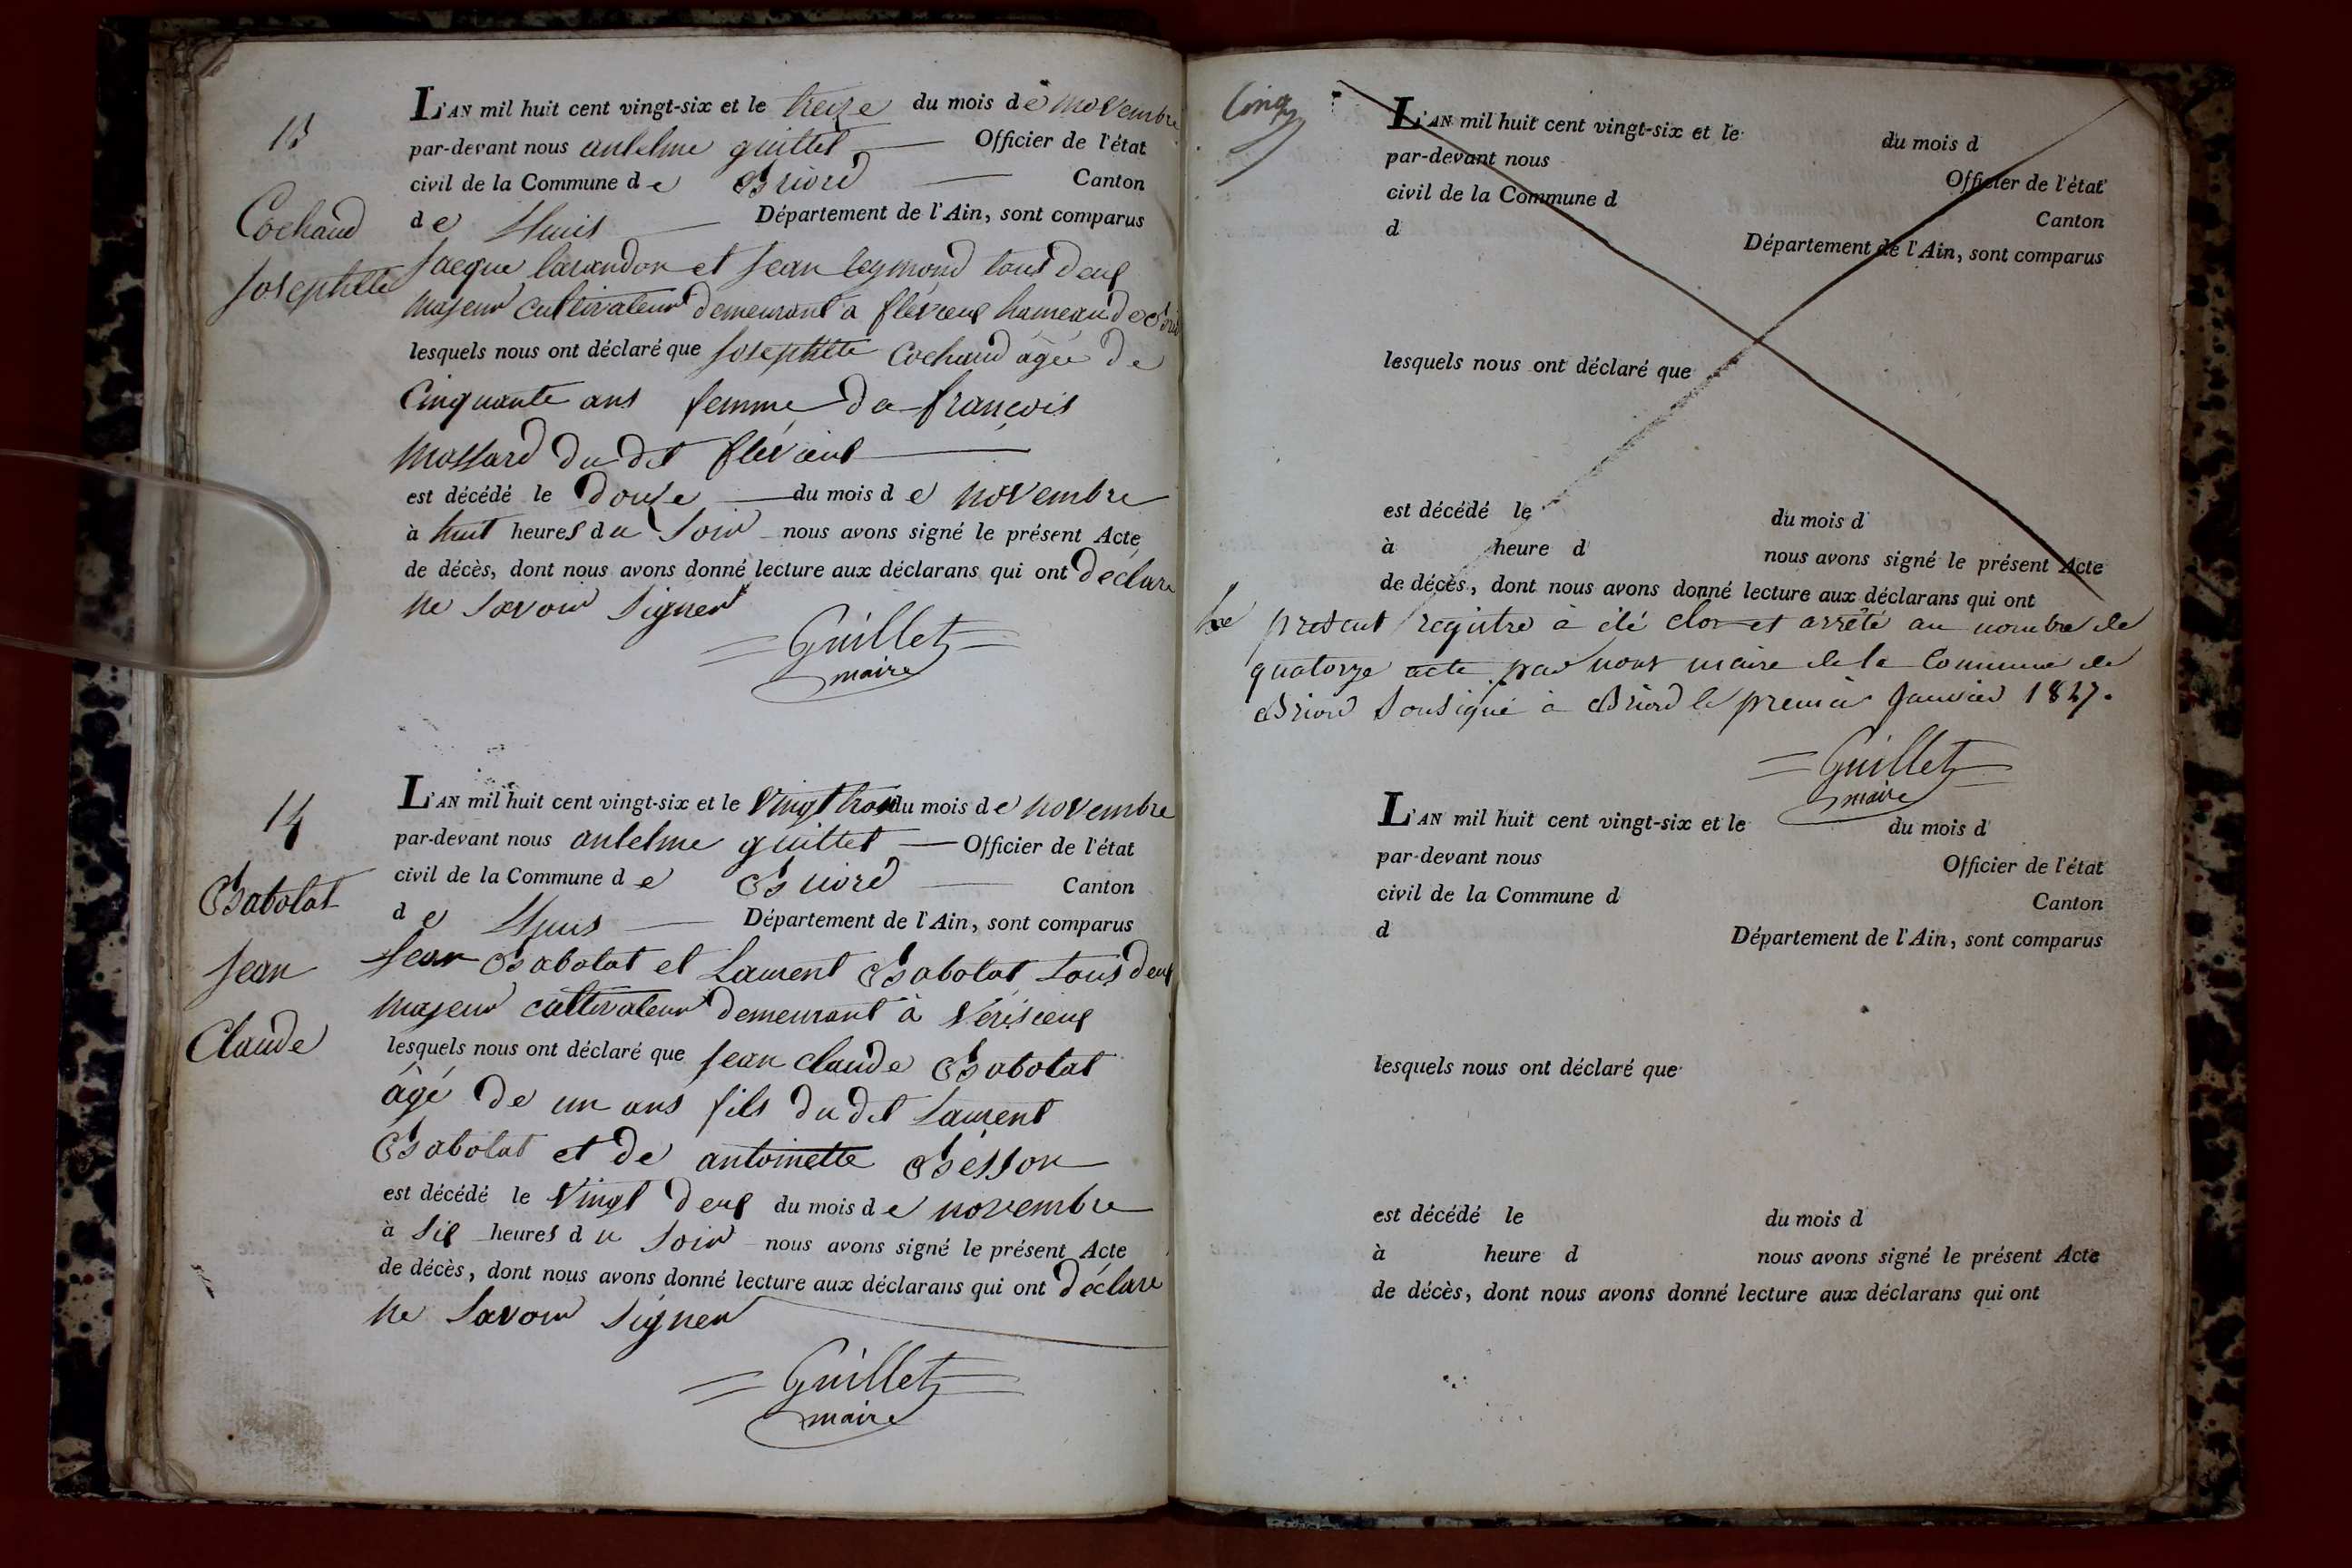 13
Cochaud
Josephette
L'AN mil huit cent vingt-six et le treize du mois de novembre
par-devant nous anthelme guillet Officier de l'état
civil de la Commune de Briord Canton
de Lhuis Département de l'Ain, sont comparus
Jacque lavandon et Jean leymond tous deux
majeur cultivateur demeurant a flévieux hameau de Briord
lesquels nous ont déclaré que Josephette Cochaud âgée de
Cinquante ans femme de françois
Massard du dit flévieux
est décédé le douse du mois de novembre
à huit heures du Soir nous avons signé le présent Acte
de décès, dont nous avons donné lecture aux déclarans qui ont déclaré
ne Savoir Signer
Guillet
maire
14
Babolat
Jean
Claude
L'AN mil huit cent vingt-six et le vingt trois du mois de novembre
par-devant nous anthelme guillet Officier de l'état
civil de la Commune de Briord Canton
de Lhuis Département de l'Ain, sont comparus
Jean Babolat et Laurent Babolat tous deux
majeur cultivateur demeurant à Vérisieux
lesquels nous ont déclaré que Jean claude Babolat
âgé de un ans fils du dit Laurent
Babolat et de antoinette Besson
est décédé le Vingt deux du mois de novembre
à Six heures du Soir nous avons signé le présent Acte
de décès, dont nous avons donné lecture aux déclarans qui ont déclaré
ne Savoir Signer
Guillet
maire
Cinq
L'AN mil huit cent vingt-six et le du mois d
par-devant nous Officier de l'état
civil de la Commune d Canton
d Département de l'Ain, sont comparus
lesquels nous ont déclaré que
est décédé le du mois d
à heure d nous avons signé le présent Acte
de décès, dont nous avons donné lecture aux déclarans qui ont
Le présent registre à été clos et arrêté au nombre de
quatorze acte par nous maire de la Commune de
Briord Sousigné à Briord le premier Janvier 1827.
Guillet
maire
L'AN mil huit cent vingt-six et le du mois d
par-devant nous Officier de l'état
civil de la Commune d Canton
d Département de l'Ain, sont comparus
lesquels nous ont déclaré que
est décédé le du mois d
à heure d nous avons signé le présent Acte
de décès, dont nous avons donné lecture aux déclarans qui ont